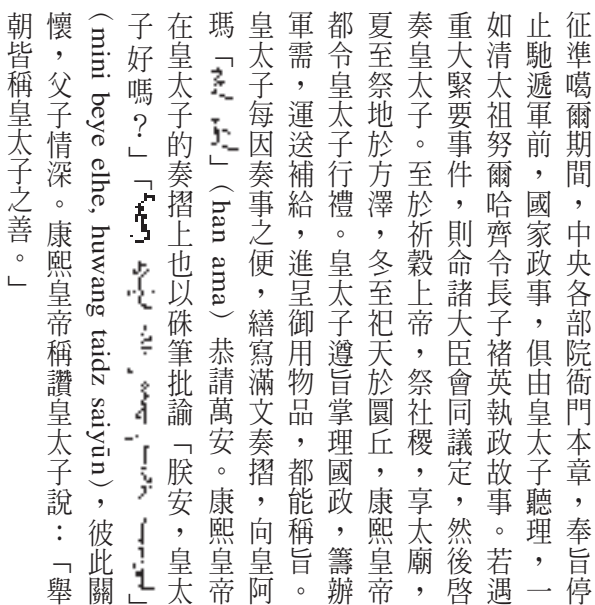 征準噶爾期間，中央各部院衙門本章，奉旨停
止馳遞軍前，國家政事，俱由皇太子聽理，一
如清太祖努爾哈齊令長子褚英執政故事。若遇
重大緊要事件，則命諸大臣會同議定，然後啓
奏皇太子。至於祈穀上帝，祭社稷，享太廟，
夏至祭地於方澤，冬至祀天於圜丘，康熙皇帝
都令皇太子行禮。皇太子遵旨掌理國政，籌辦
軍需，運送補給，進呈御用物品，都能稱旨。
皇太子每因奏事之便，繕寫滿文奏摺，向皇阿
瑪「」（han ama）恭請萬安。康熙皇帝
在皇太子的奏摺上也以硃筆批諭「朕安，皇太
子好嗎？」「」
（mini beye elhe, huwang taidz saiyūn），彼此關
懷，父子情深。康熙皇帝稱讚皇太子說：「舉
朝皆稱皇太子之善。」